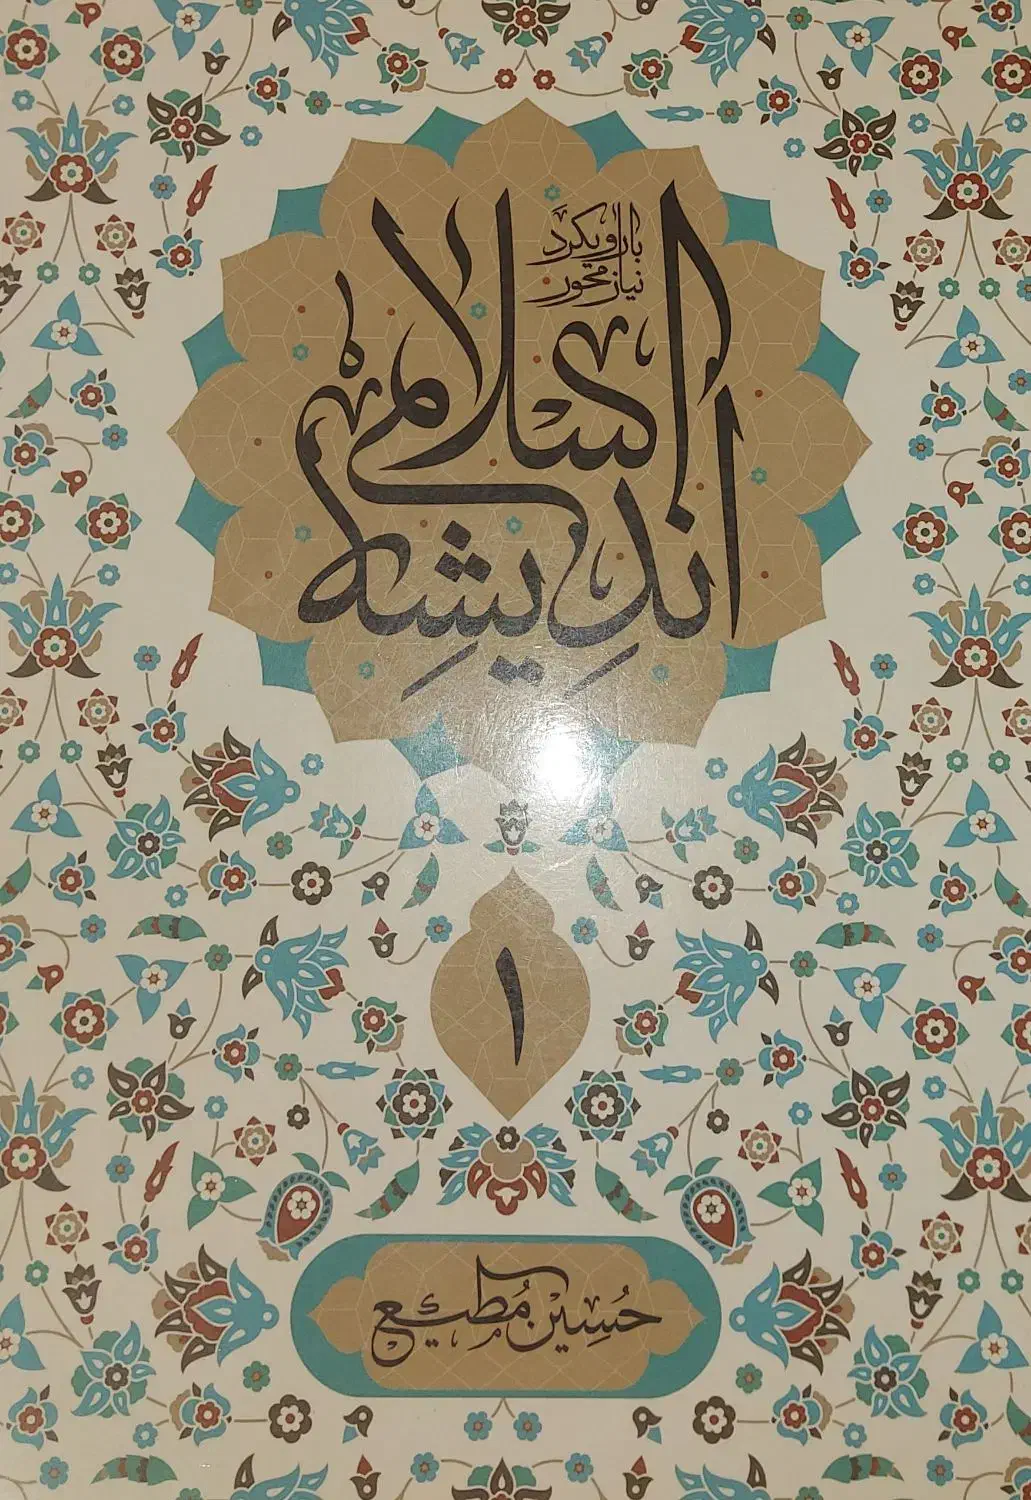 اندیشه اسلامی
با رویکرد
نیاز محور
۱
حسین مطیع